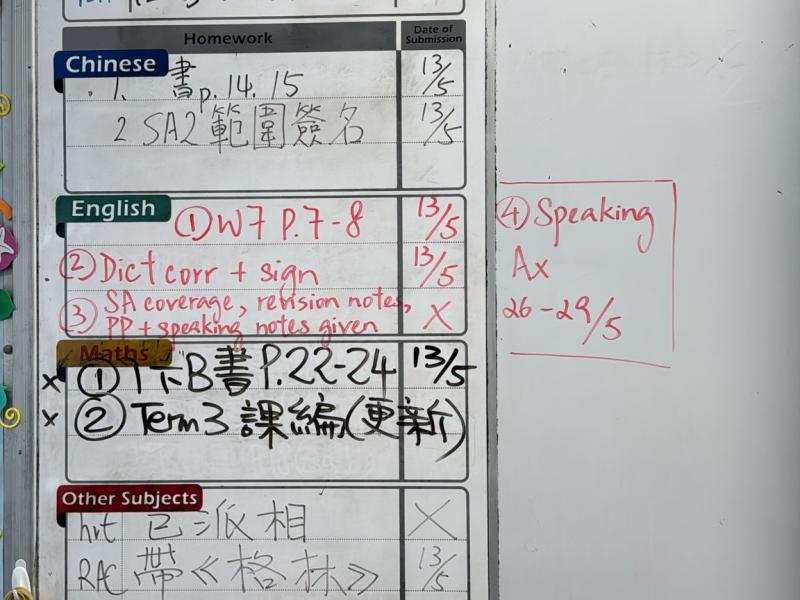 Homework
Date of Submission
Chinese
1. 書p.14.15 13/5
2 SA2範圍簽名 13/5
English
① W7 P.7-8 13/5
② Dict corr + sign 13/5
③ SA coverage, revision notes, PP + speaking notes given X
④ Speaking
Ax
26-29/5
Maths
x ① 1下B書 P.22-24 13/5
x ② Term 3 課編(更新)
Other Subjects
hrt 已派相 X
RAC 帶《格林》 13/5